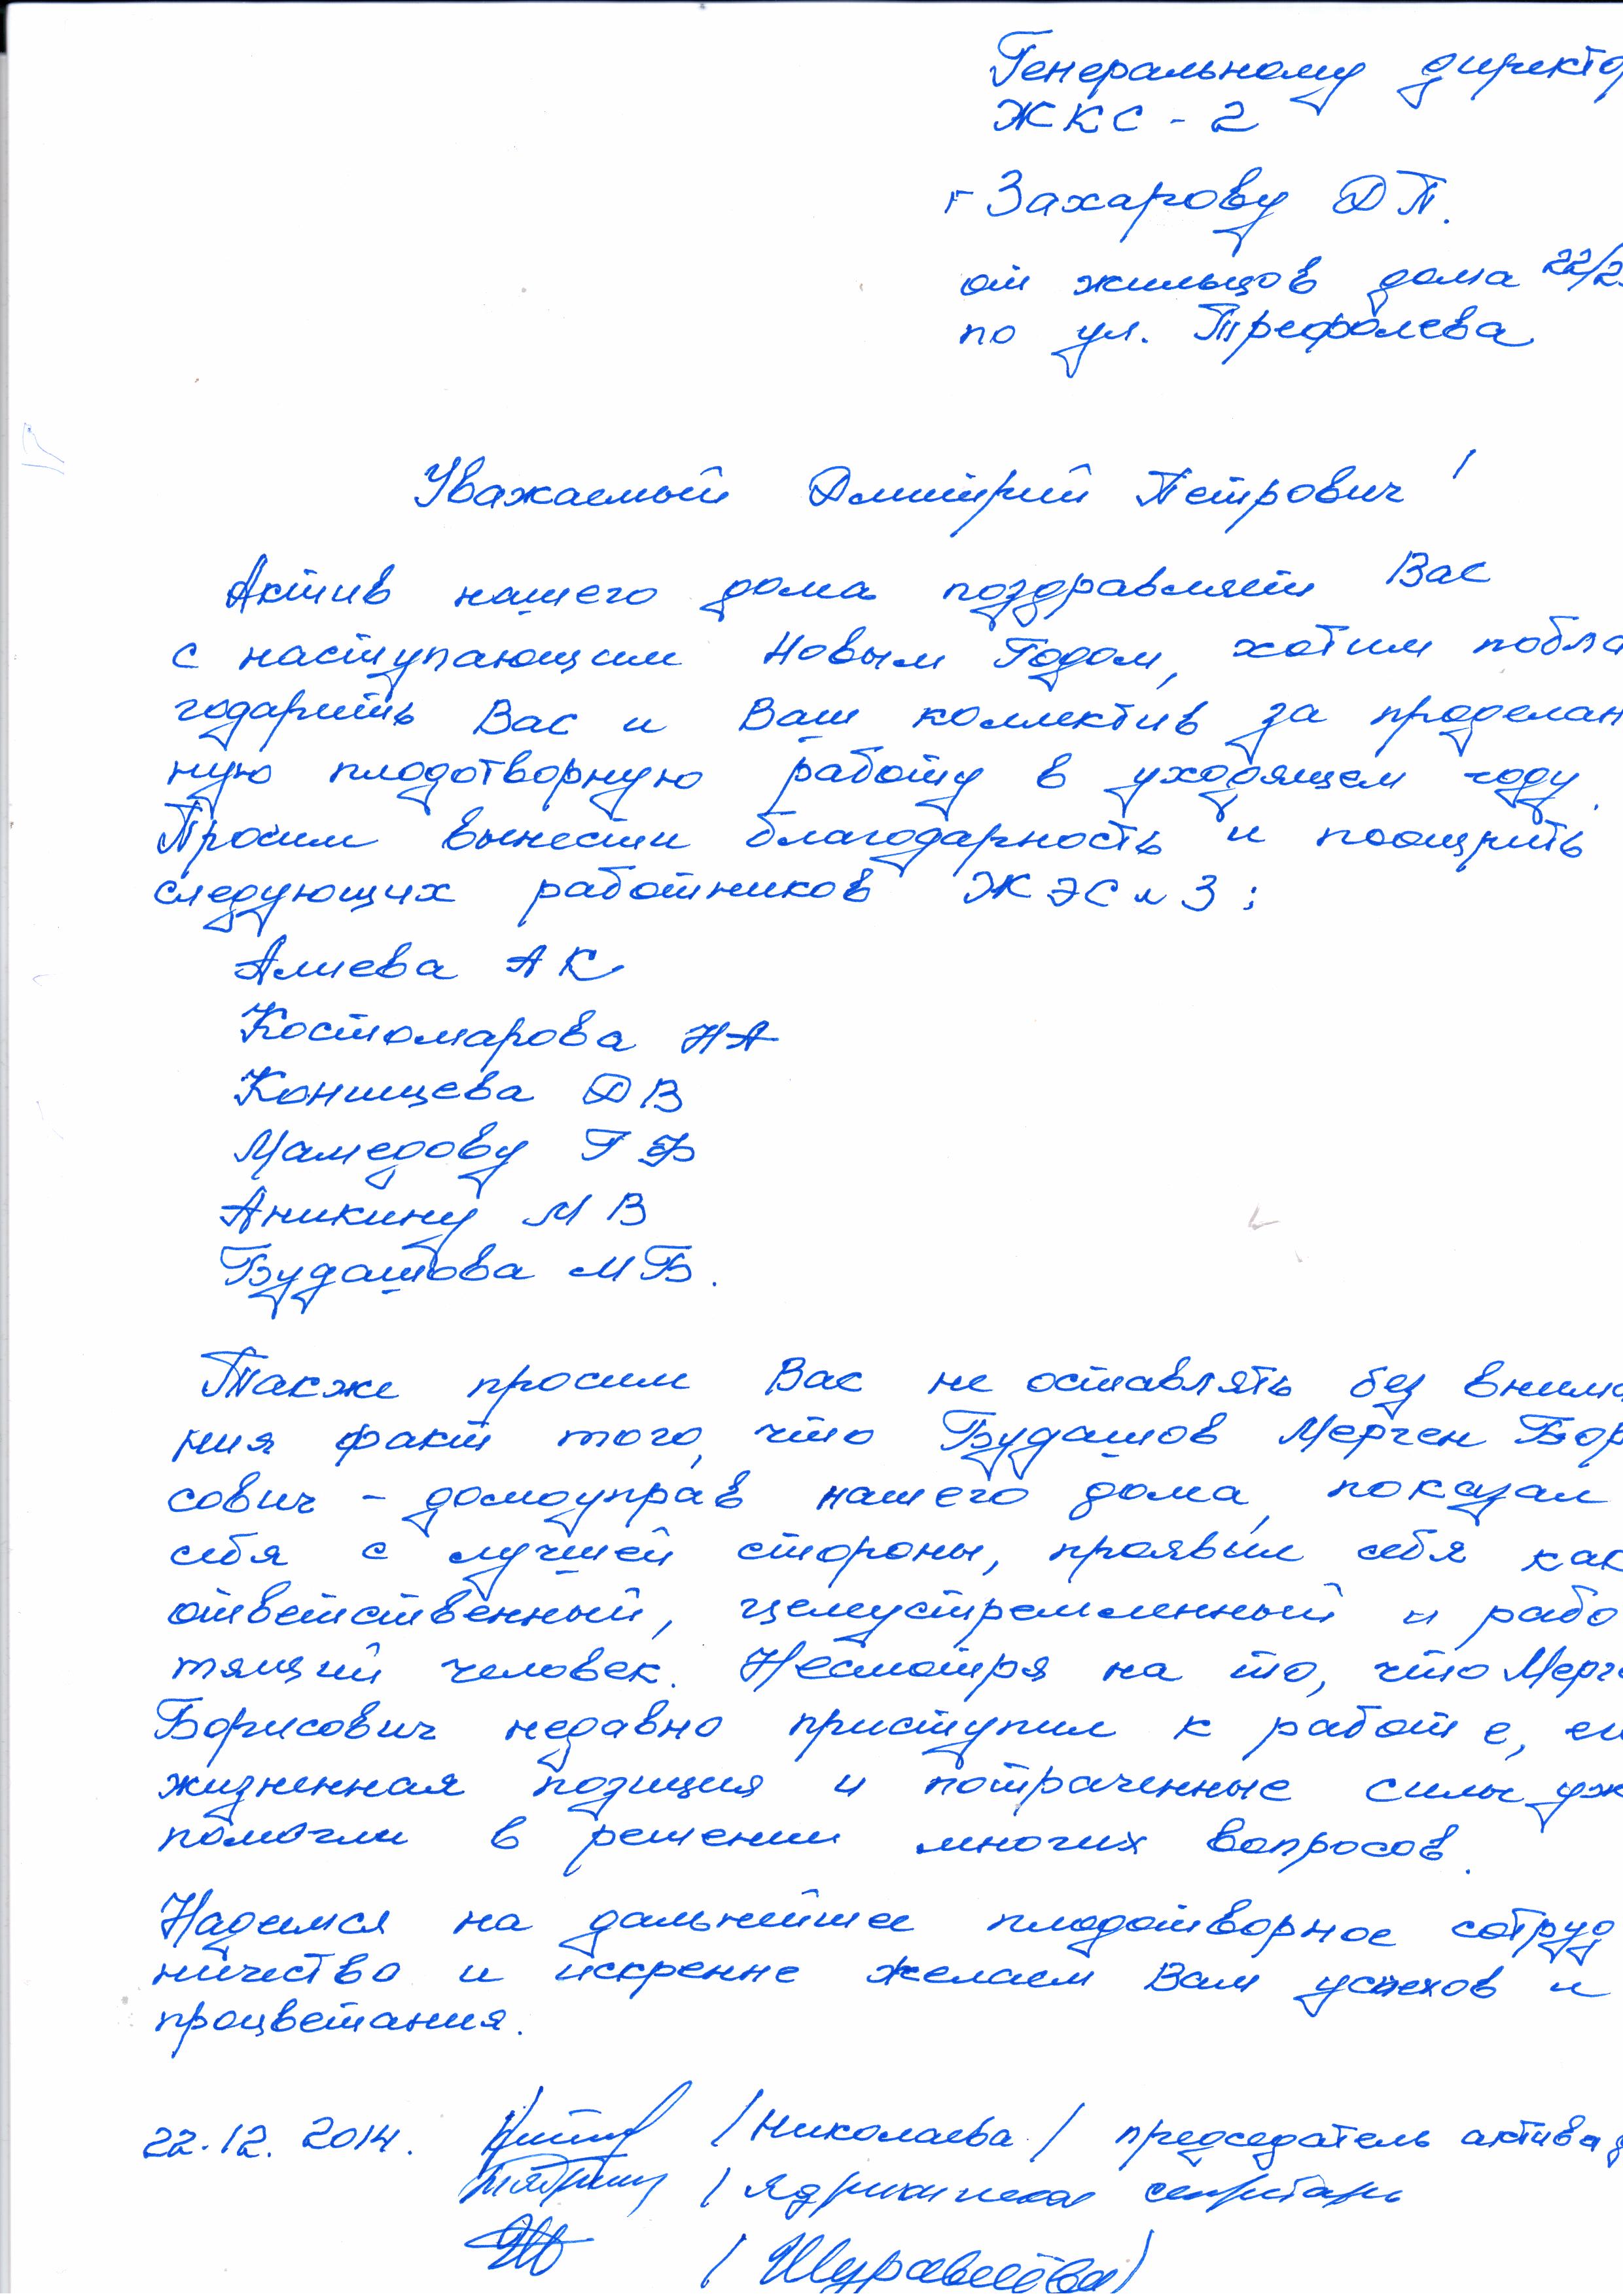 Генеральному директо
ЖКС - 2
г Захарову Д П.
от жильцов дома 22/2
по ул. Трефолева
Уважаемый Дмитрий Петрович!
Актив нашего дома поздравляет Вас
с наступающим Новым Годом, хотим побла
годарить Вас и Ваш коллектив за проделан
ную плодотворную работу в уходящем году.
Просим вынести благодарность и поощрить
следующих работников ЖЭС № 3:
Алиева А К
Костомарова Н А
Конищева Д В
Мамедову Г Ф
Аникину М В
Будашова М Б.
Также просим Вас не оставлять без внима
ния факт того, что Будашов Мерген Бор
сович - домоуправ нашего дома, показал
себя с лучшей стороны, проявил себя как
ответственный, целеустремленный и рабо
тящий человек. Несмотря на то, что Мерге
Борисович недавно приступил к работе, ег
жизненная позиция и потраченные силы уж
помогли в решении многих вопросов.
Надеемся на дальнейшее плодотворное сотруд
ничество и искренне желаем Вам успехов и
процветания.
22.12. 2014. / Николаева / председатель актива д
/ секретарь
/ /